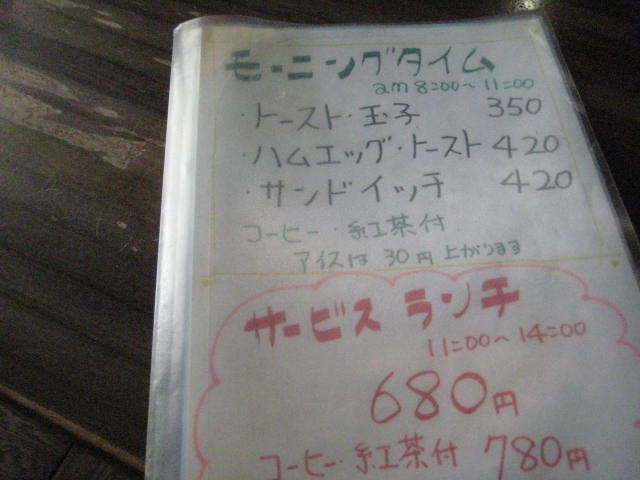 モーニングタイム
am 8:00〜11:00
・トースト・玉子 350
・ハムエッグ・トースト 420
・サンドイッチ 420
コーヒー・紅茶付
アイスは 30円 上がります
サービス ランチ
11:00〜14:00
680円
コーヒー・紅茶付 780円